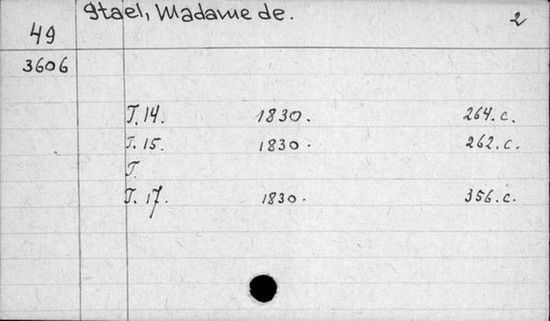 Stael, Madame de. 2
49
3606
T. 14. 1830. 264. c.
T. 15. 1830. 262. c.
T.
T. 17. 1830. 356. c.